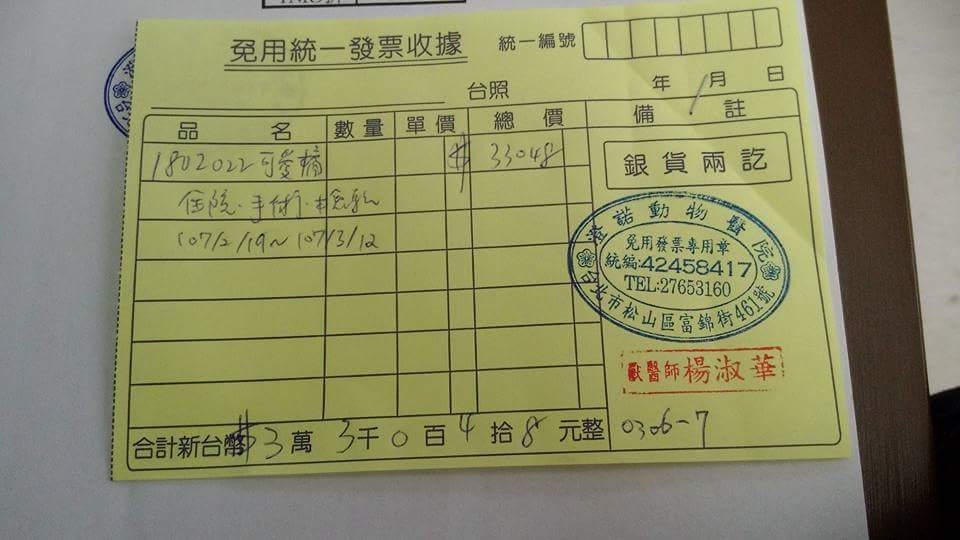 免用統一發票收據
統一編號
台照
年 1月 日
品名 數量 單價 總價 備註
1802022可愛橘 $ 33048
銀貨兩訖
住院.手術.檢驗
107/2/19~107/3/12
澄諾動物醫院
免用發票專用章
統編:42458417
TEL:27653160
台北市松山區富錦街461號
獸醫師 楊淑華
合計新台幣 $ 3萬 3千 0百 4拾 8元整
0306-7